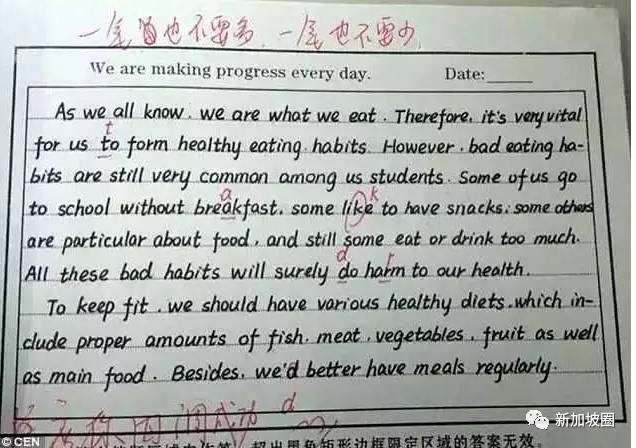 一尾也不要多、一尾也不要少
We are making progress every day. Date:
As we all know, we are what we eat. Therefore, it's very vital
t
for us to form healthy eating habits. However, bad eating ha-
bits are still very common among us students. Some of us go
a k
to school without breakfast, some like to have snacks; some others
are particular about food, and still some eat or drink too much.
d r
All these bad habits will surely do harm to our health.
To keep fit, we should have various healthy diets, which in-
clude proper amounts of fish, meat, vegetables, fruit as well
as main food. Besides, we'd better have meals regularly.
d
超出黑色矩形边框限定区域的答案无效
© CEN
新加坡圈